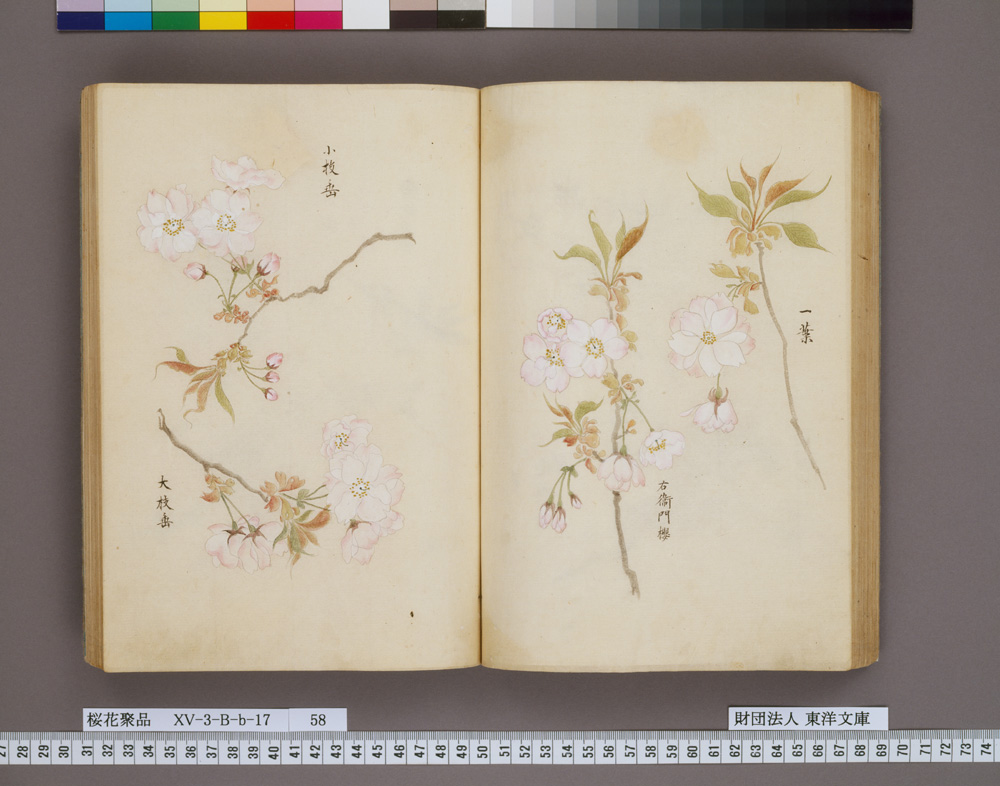 一葉
右衞門櫻
小枝岳
大枝岳
桜花聚品 XV-3-B-b-17 58
財団法人 東洋文庫
27 28 29 30 31 32 33 34 35 36 37 38 39 40 41 42 43 44 45 46 47 48 49 50 51 52 53 54 55 56 57 58 59 60 61 62 63 64 65 66 67 68 69 70 71 72 73 74